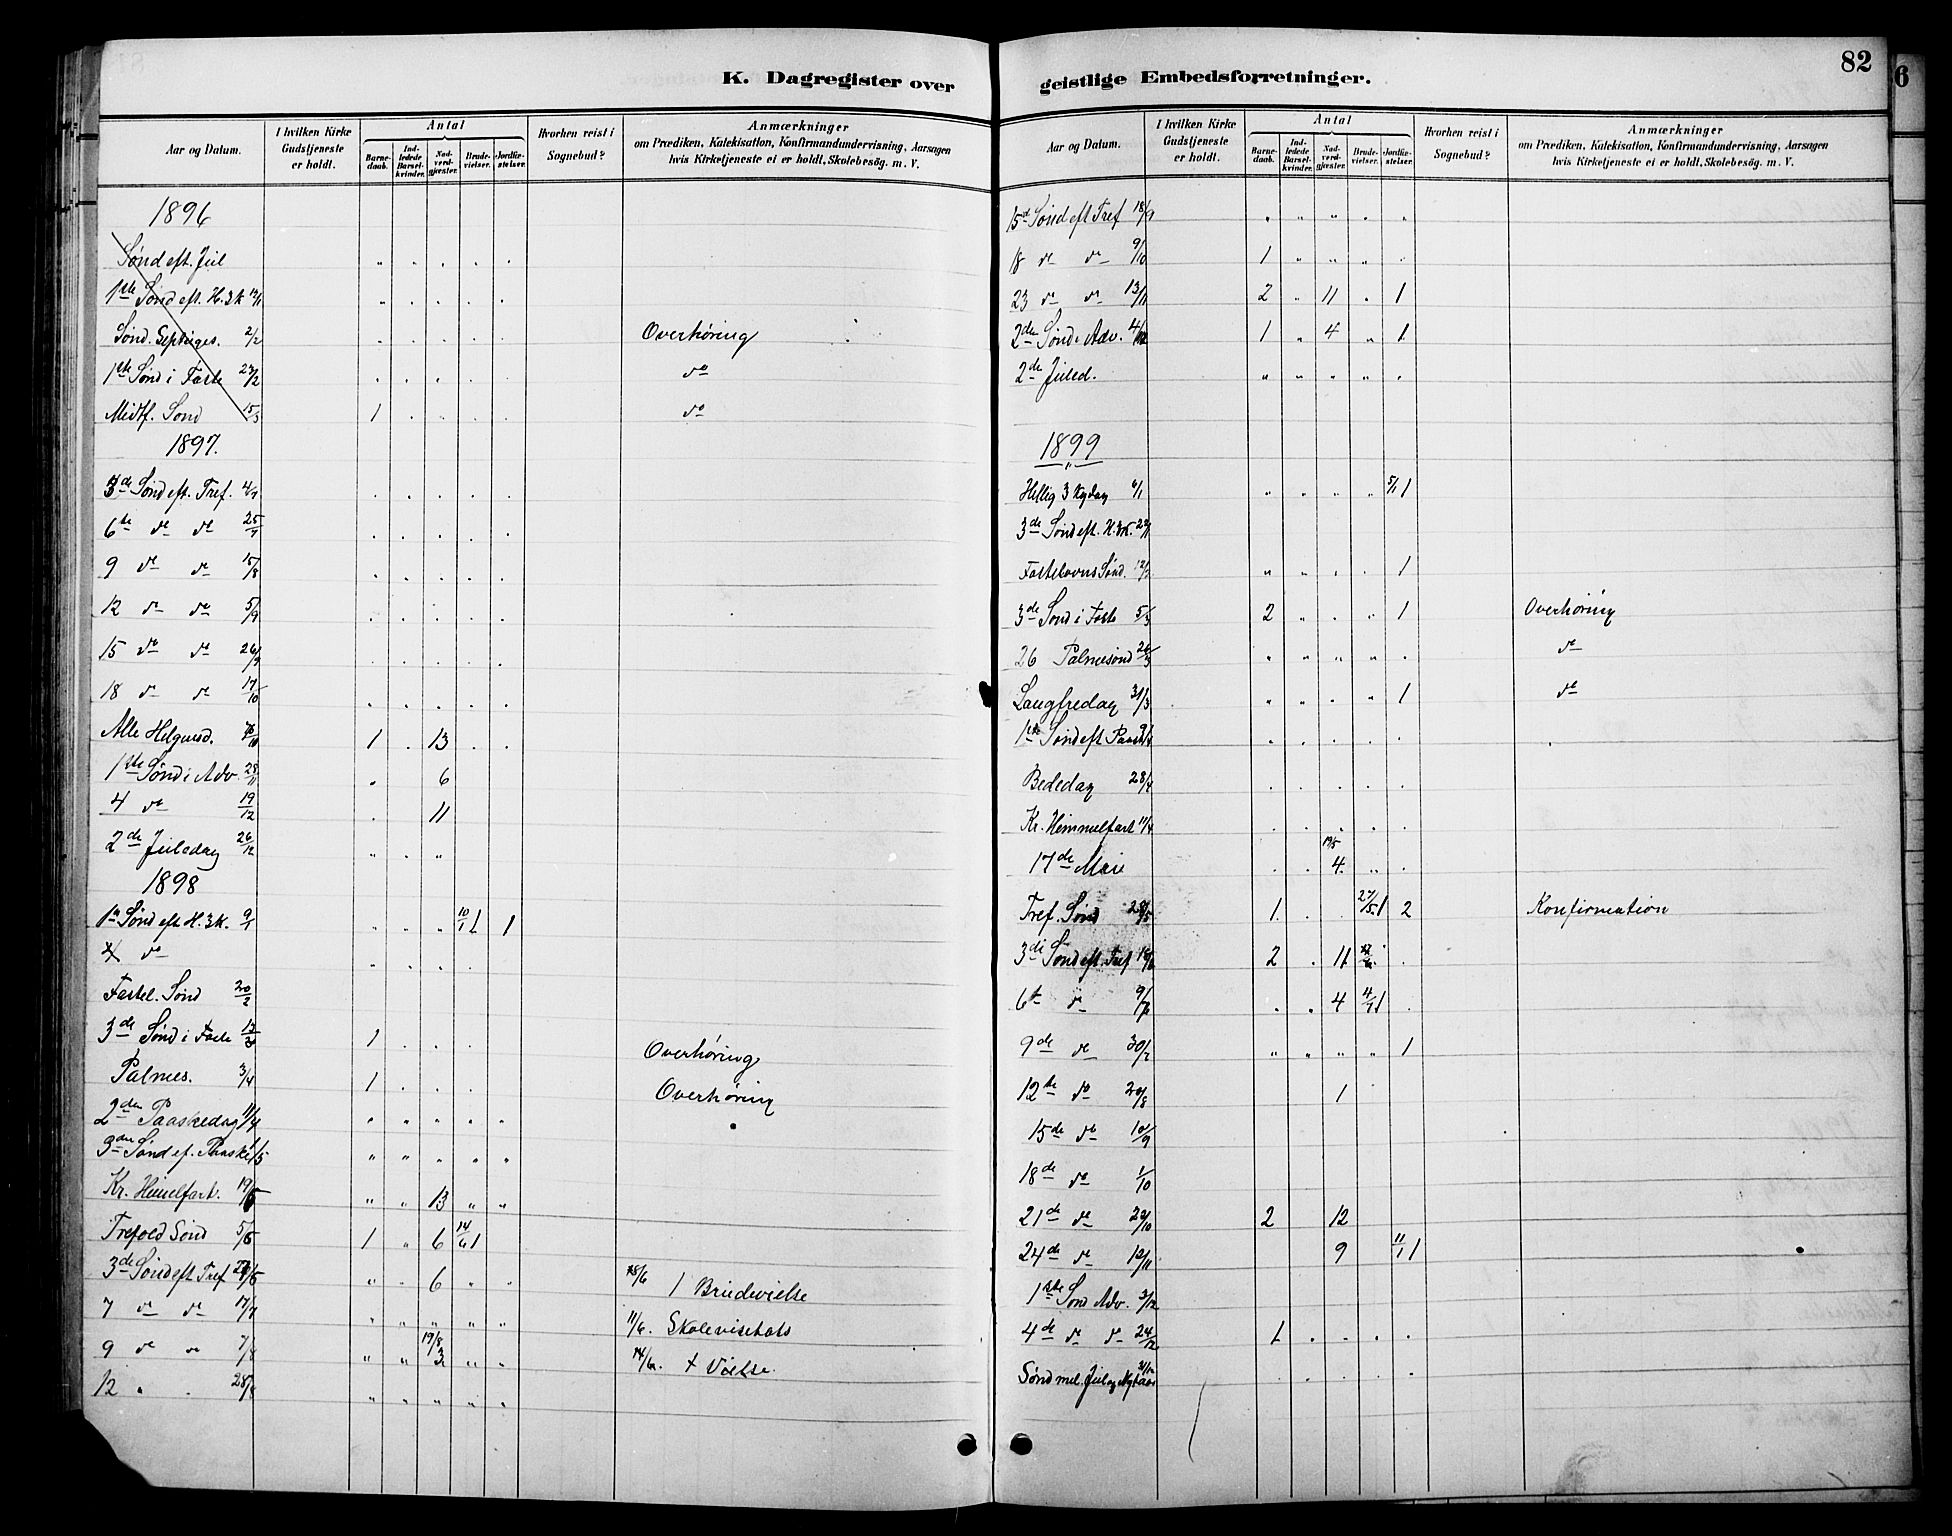 82
K. Dagregister over geistlige Embedsforretninger.
Aar og Datum.
I hvilken Kirke Gudstjeneste er holdt.
Antal
Barne-daab.
Ind-ledede Barsel-kvinder.
Nad-verd-gjæster.
Brude-vielser.
Jordfæ-stelser.
Hvorhen reist i Sognebud?
Anmærkninger
om Prædiken, Katekisation, Konfirmandundervisning, Aarsagen
hvis Kirketjeneste ei er holdt, Skolebesög. m. V.
1896
Sønd eft. Jul
1ste Sønd eft. H. 3 K 12/1
Sønd. Septuages. 2/2 Overhøring
1ste Sønd i Faste 23/2 do
Midtf. Sønd 15/3 1 do
1897.
3de Sønd eft. Tref. 4/7
6te do do 25/7
9 do do 15/8
12 do do 5/9
15 do do 26/9
18 do do 17/10
Alle Helgensd. 1 . 13
1ste Sønd i Adv. 28/11 6
4 do 19/12 11
2de Juledag 26/12
1898
1ste Sønd eft H. 3 K. 9/1 10/1 1 1
do
Fastel. Sønd 20/2
3de Sønd i Faste 13/3 1 Overhøring
Palmes. 3/4 1 Overhøring
2den Paaskedag 11/4
3die Sønd ef. Paaske 1/5
Kr. Himelfart. 19/5 13
Trefold Sønd 5/6 1 6 14/6 1
3de Sønd eft Tref 26/6 6 1 Brudevielse
7 do do 17/7 11/6. Skolevisitats
9 do do 7/8 19/8 3 14/6. Vielse.
12 28/8
Aar og Datum.
I hvilken Kirke Gudstjeneste er holdt.
Antal
Barne-daab.
Ind-ledede Barsel-kvinder.
Nad-verd-gjæster.
Brude-vielser.
Jordfæ-stelser.
Hvorhen reist i Sognebud?
Anmærkninger
om Prædiken, Katekisation, Konfirmandundervisning, Aarsagen
hvis Kirketjeneste ei er holdt, Skolebesög. m. V.
15de Sønd eft Tref 18/9
18 do do 9/10 1
23 do do 13/11 2 11 1
2den Sønd i Adv. 4/12 1 4 1
2de Juled.
1899
Hellig 3 Kgdag 6/1 5/1 1
3de Sønd eft. H. 3 K. 22/1
Fastelavns Sønd. 12/2 1
3de Sønd i Faste 5/3 2 1 Overhøring
26 Palmesønd 26/3 do
Langfredag 31/3 1 do
1ste Sønd eft Paaske 9/4
Bededag 28/4
Kr. Himmelfart 11/4
17de Mai 19/5 4
Tref. Sønd 28/5 1 27/5 1 2 Konfirmation
3die Sønd eft. Tref 18/6 2 11
6te do 9/7 4 4/7 1
9de do 30/7 1
12te do 20/8 1
15de do 10/9
18de do 1/10
21de do 22/10 2 12
24de do 12/11 9 11/1 1
1ste Sønd Adv. 3/12
4de do do 24/12 1
Sønd mel. Jul og Nytaar 31/12